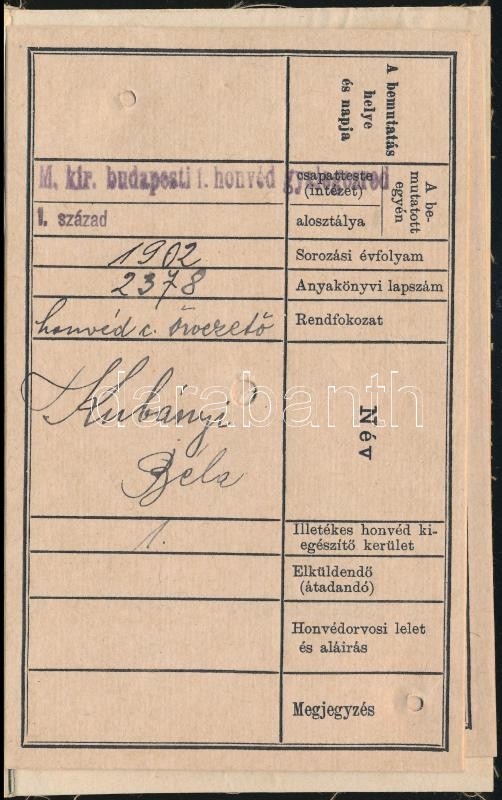 A bemutatás
helye
és napja
M. kir. budapesti 1. honvéd gyalogezred
A be-
mutatott
egyén
csapatteste
(intézet)
1. század
alosztálya
1902
Sorozási évfolyam
2378
Anyakönyvi lapszám
honvéd c. őrvezető
Rendfokozat
Kubányi
Béla
Név
1.
Illetékes honvéd ki-
egészítő kerület
Elküldendő
(átadandó)
Honvédorvosi lelet
és aláirás
Megjegyzés
darabanth